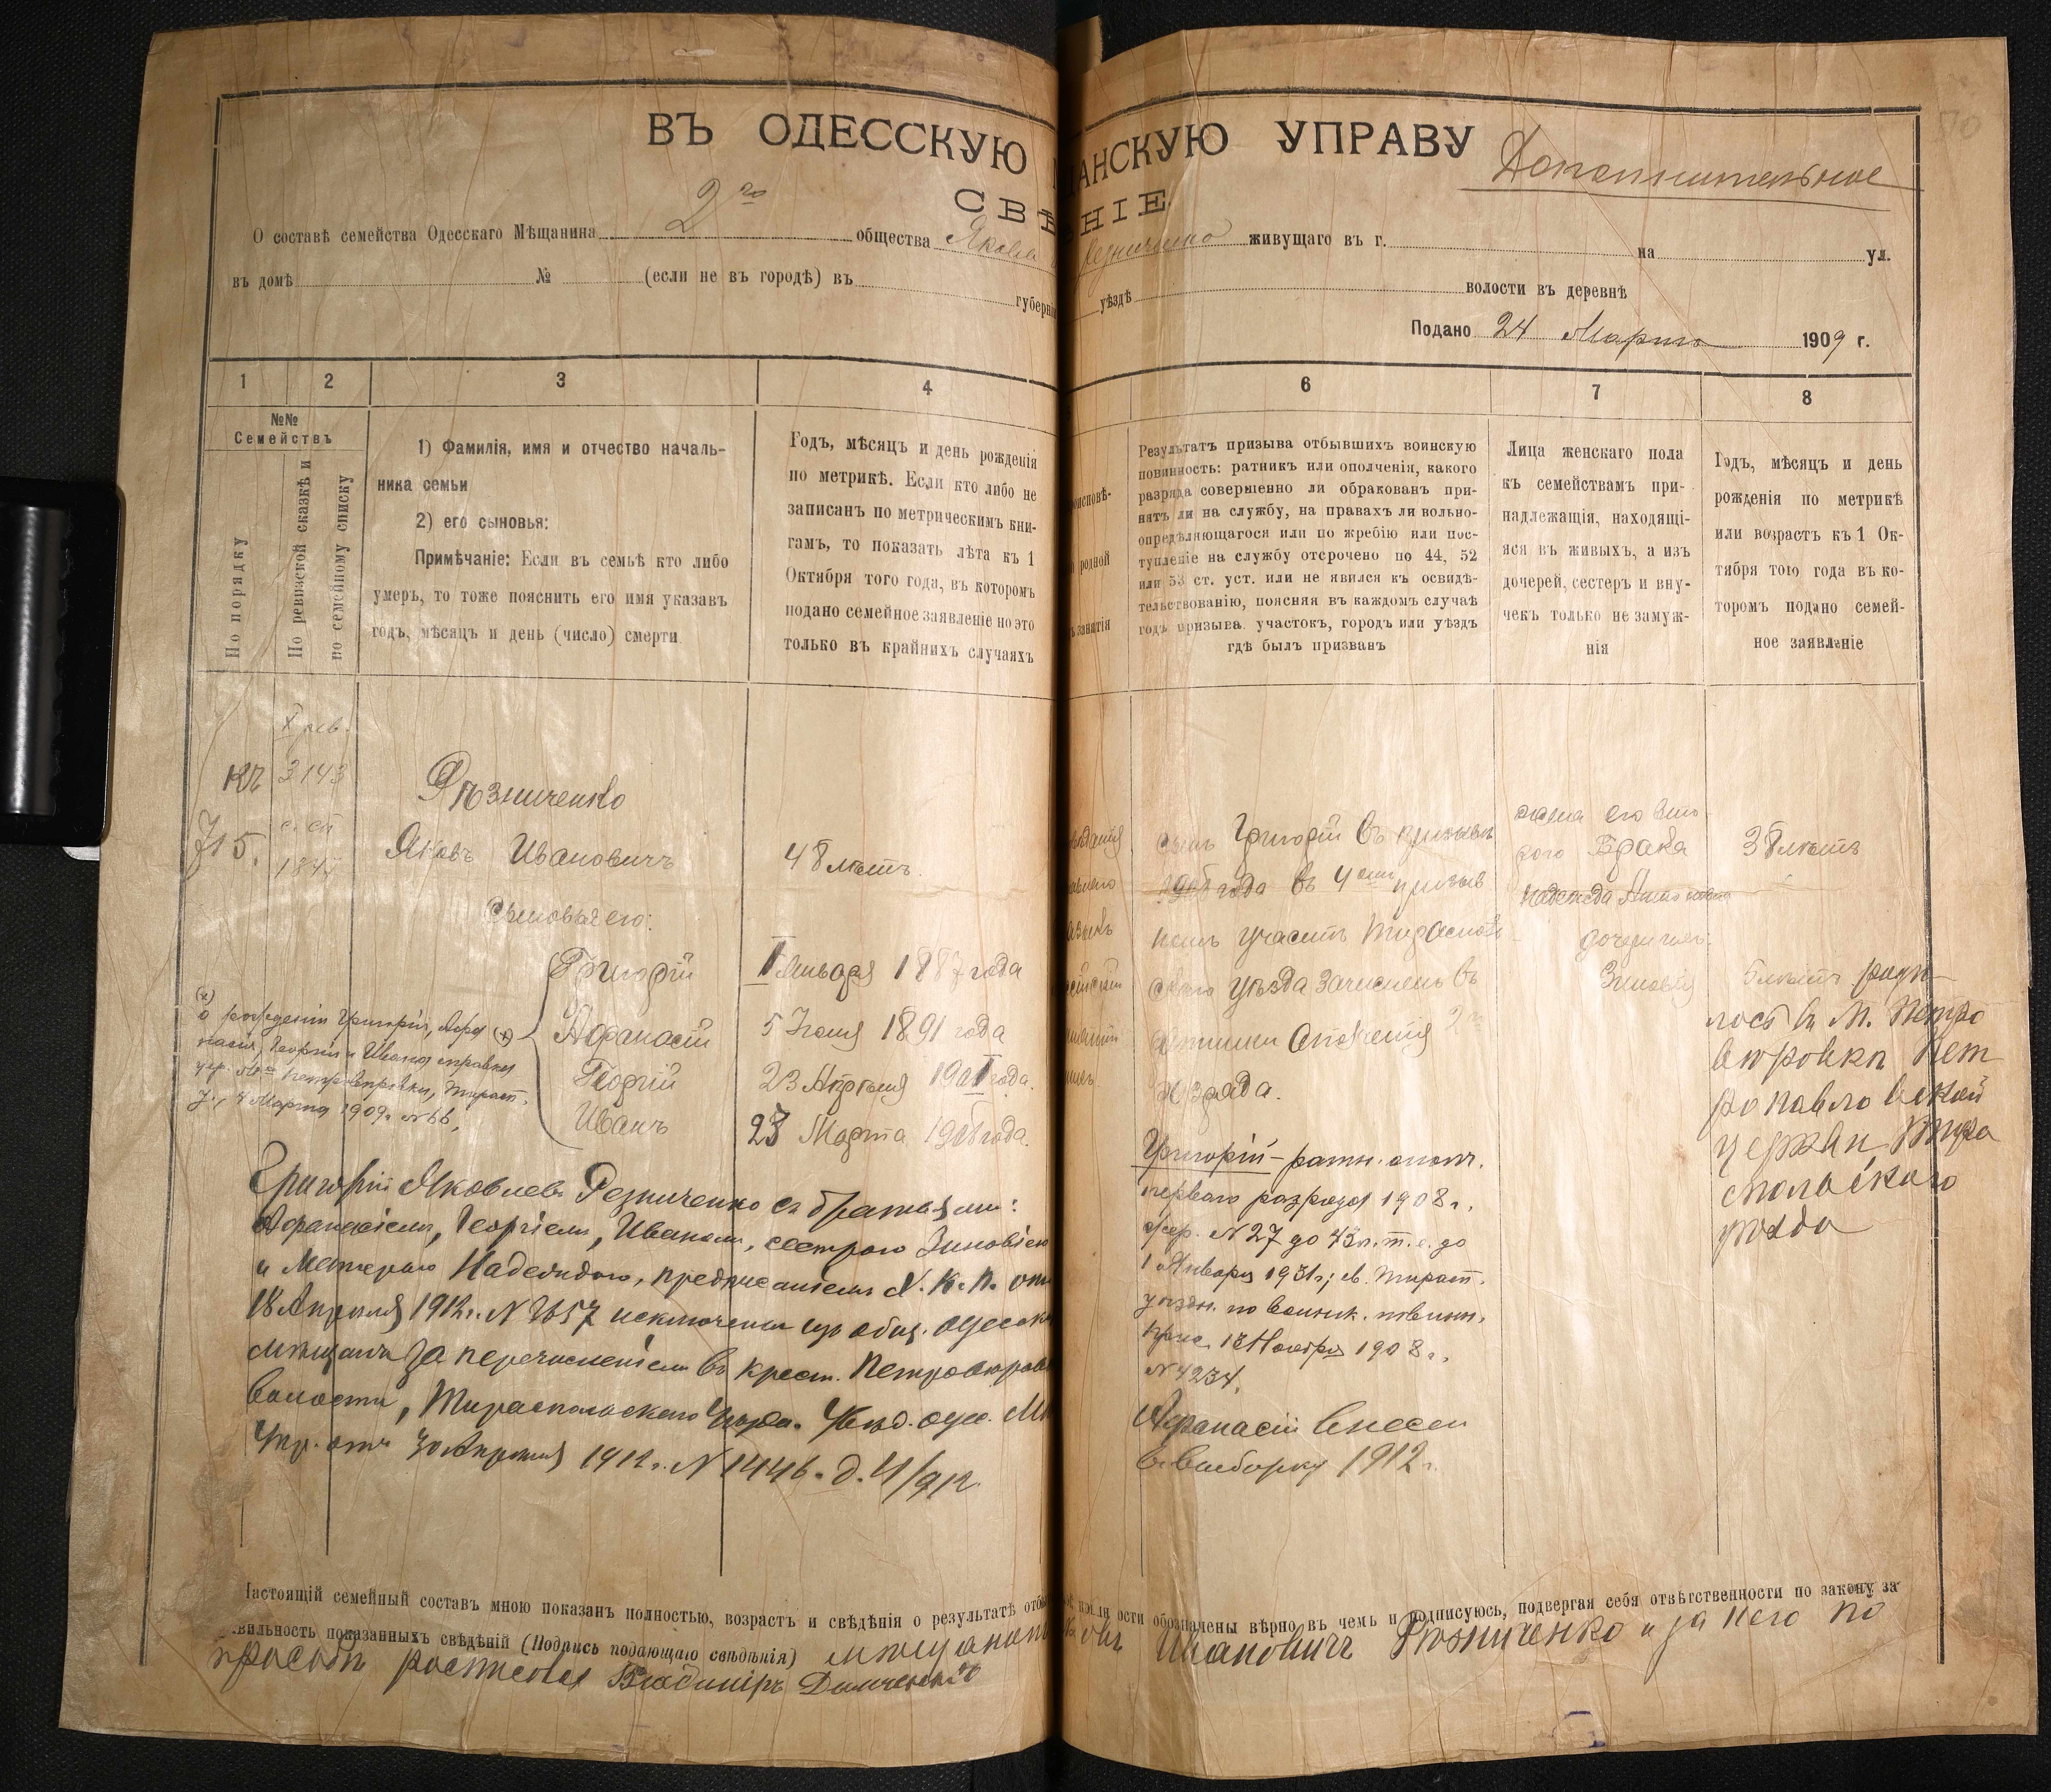 ВЪ ОДЕССКУЮ
ЩАНСКУЮ УПРАВУ
Дополнительное
СВѢ
НІЕ
О составѣ семейства Одесскаго Мѣщанина 2го общества Якова
Резниченко живущаго въ г. на ул.
въ домѣ № (если не въ городѣ) въ губерніи
уѣздѣ волости въ деревнѣ
Подано 24 Марта 1909 г.
1 2 3 4
6 7 8
№№ Семействъ
По порядку
По ревизской сказкѣ и
по семейному списку
1) Фамилія, имя и отчество началь-
ника семьи
2) его сыновья:
Примѣчаніе: Если въ семьѣ кто либо
умеръ, то тоже пояснить его имя указавъ
годъ, мѣсяцъ и день (число) смерти
Годъ, мѣсяцъ и день рожденія
по метрикѣ. Если кто либо не
записанъ по метрическимъ кни-
гамъ, то показать лѣта къ 1
Октября того года, въ которомъ
подано семейное заявленіе но это
только въ крайнихъ случаяхъ
роисповѣ-
родной
занятія
Результатъ призыва отбывшихъ воинскую
повинность: ратникъ или ополченія, какого
разряда совершенно ли обракованъ при-
нятъ ли на службу, на правахъ ли вольно-
опредѣляющагося или по жребію или пос-
тупленіе на службу отсрочено по 44, 52
или 53 ст. уст. или не явился къ освидѣ-
тельствованію, поясняя въ каждомъ случаѣ
годъ призыва. участокъ, городъ или уѣздъ
гдѣ былъ призванъ
Лица женскаго пола
къ семействамъ при-
надлежащія, находящі-
яся въ живыхъ, а изъ
дочерей, сестеръ и вну-
чекъ только не замуж-
нія
Годъ, мѣсяцъ и день
рожденія по метрикѣ
или возрастъ къ 1 Ок-
тября того года въ ко-
торомъ подано семей-
ное заявленіе
X рев.
къ 3143
715.
Рѣзниченко
Яковъ Ивановичъ 48 лѣтъ
Сыновья его:
Григорій 1 Января 1887 года
Афанасій 5 Іюля 1891 года
Георгій 23 Апрѣля 1901 года.
Иванъ 23 Марта 1908 года.
(х) о рожденіи Григорія, Афа (х)
насія, Георгія и Ивана справка
Петровѣровки, Тирасп.
у., 4 Марта 1909 г. № 66,
Григорій Яковлевъ Резниченко съ братьями:
Афанасіемъ, Георгіемъ, Иваномъ, сестрою Зиновіею
и Матерью Надеждою, предписаніемъ Х. К. П. отъ
18 Апрѣля 1912 г. N 2657 исключены изъ общ. одесск.
мѣщанъ за перечисленіемъ въ крест. Петровѣров
волости, Тираспольскаго Уѣзда. Увѣд. одес. Мѣ
Упр. отъ 30 Апрѣля 1912 г. N 1446. д. 4/912
сынъ Григорій въ призывъ
1908 года въ 4омъ призыв
номъ участкѣ Тирасполь-
скаго уѣзда зачисленъ въ
ратники ополченія 2
разряда.
Григорій – ратн. ополч.
перваго разряда 1908 г.,
жер. N 27 до 43 л. т. е. до
1 Января 1931 г.; св. Тирасп.
уѣздн. по воинск. повинн.
прис. 18 Ноября 1908 г.,
N 4234,
Афанасій внесен
въ выборку 1912 г.
жена его вто-
рого Брака
Надежда
дочери ихъ:
Зиновія
38 лѣтъ
6 лѣтъ роди
лось въ М. Петро
вѣровкѣ Пет
ропавловской
церкви Тира
спольскаго
уѣзда
Настоящій семейный составъ мною показанъ полностью, возрастъ и свѣдѣнія о результатѣ отбы
ости обозначены вѣрно въ чемъ и подписуюсь, подвергая себя отвѣтственности по закону за
вильность показанныхъ свѣдѣній (Подпись подающаго свѣдѣнія) мѣщанинъ
Яковъ Ивановичъ Рѣзниченко и за него по
просьбѣ росписался Владиміръ